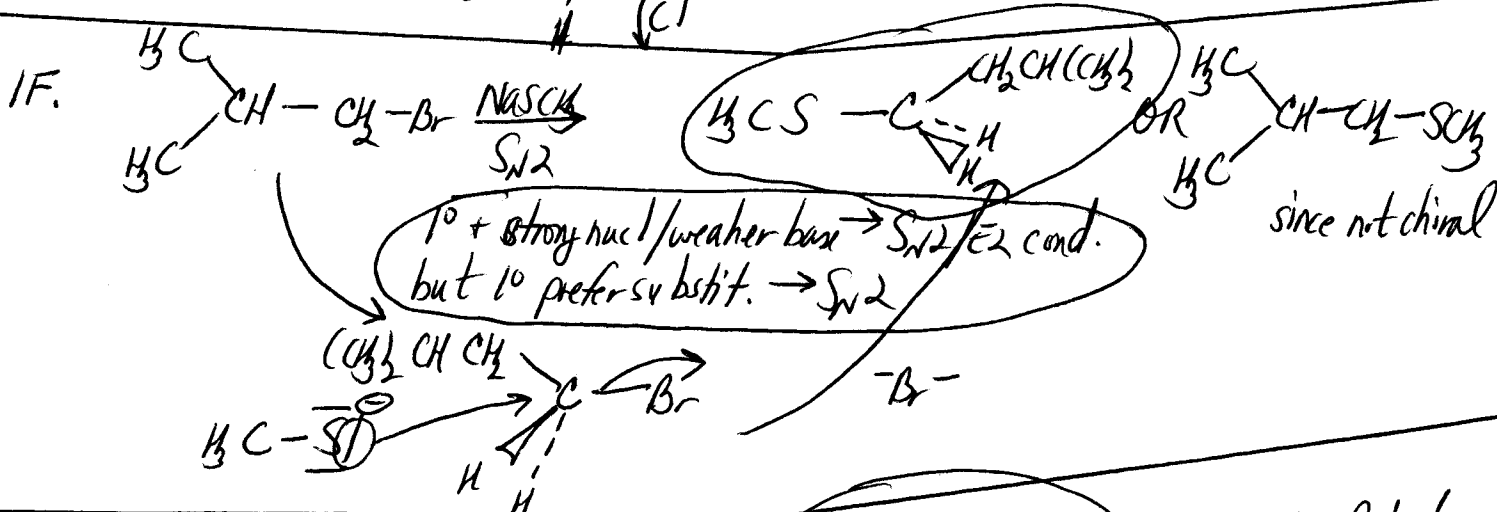 H Cl
1F.
H₃C
H₃C
CH — CH₂ — Br
NaSCH₃
SN2
H₃CS — C
CH₂CH(CH₃)₂
H
H
OR
H₃C
H₃C
CH—CH₂—SCH₃
since not chiral
1° + strong nucl/weaker base → SN2/E2 cond.
but 1° prefer substit. → SN2
(CH₃)₂ CH CH₂
C — Br
H₃C — S ⊖
H
H
-Br⁻